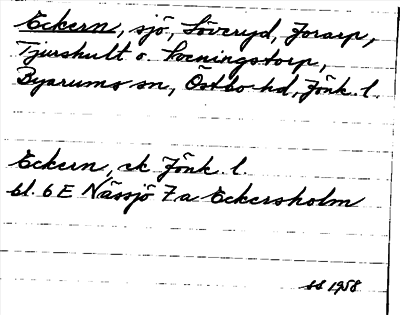 Eckern, sjö, Löveryd, Jorarp,
Tjurshult o. Sveningstorp,
Byarums sn, Östbo hd, Jönk. l.
Eckern, ek. Jönk. l.
bl. 6 E Nässjö 7 a Eckersholm
1958